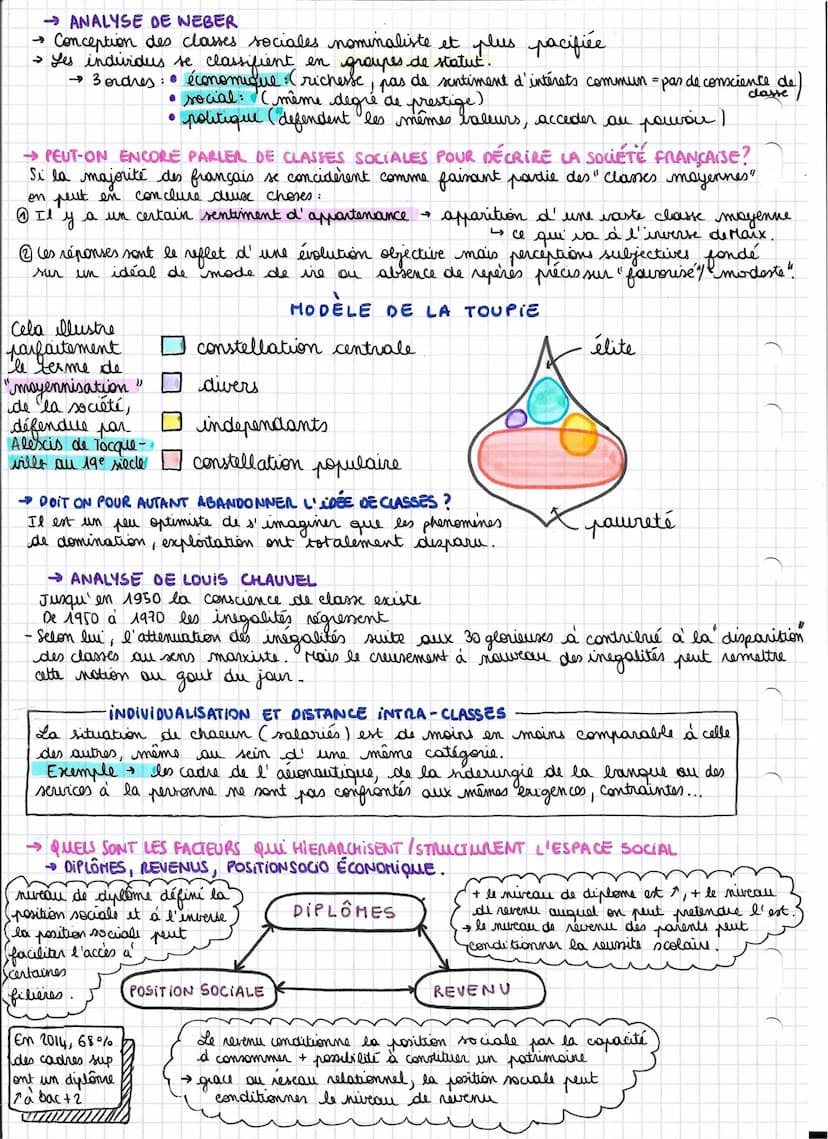 → ANALYSE DE WEBER
→ Conception des classes sociales nominaliste et plus pacifiée
→ Les individus se classifient en groupes de statut.
→ 3 ordres : • économique : ( richesse, pas de sentiment d'intérêts commun = pas de consciente de classe )
• social : ( même degré de prestige )
• politique ( défendent les mêmes valeurs, acceder au pouvoir )
→ PEUT-ON ENCORE PARLER DE CLASSES SOCIALES POUR DÉCRIRE LA SOCIÉTÉ FRANÇAISE ?
Si la majorité des français se considèrent comme faisant partie des "classes moyennes"
on peut en conclure deux choses :
① Il y a un certain sentiment d'appartenance → apparition d'une vaste classe moyenne
↳ ce qui va à l'inverse de Marx.
② Les réponses sont le reflet d'une évolution objective mais perceptions subjectives, fondé
sur un idéal de mode de vie ou absence de repères précis sur "favorisé"/"modeste".
MODÈLE DE LA TOUPIE
Cela illustre
parfaitement
le terme de
"moyennisation"
de la société,
défendue par
Alexis de Tocque-
ville au 19e siècle
constellation centrale
divers
independants
constellation populaire
élite
pauvreté
→ DOIT ON POUR AUTANT ABANDONNER L'IDÉE DE CLASSES ?
Il est un peu optimiste de s'imaginer que les phenomènes
de domination, exploitation ont totalement disparu.
→ ANALYSE DE LOUIS CHAUVEL
Jusqu'en 1950 la conscience de classe existe
De 1950 à 1970 les inegalités régressent
- Selon lui, l'attenuation des inégalités suite aux 30 glorieuses à contribué à la "disparition"
des classes au sens marxiste. Mais le creusement à nouveau des inegalités peut remettre
cette notion au gout du jour.
INDIVIDUALISATION ET DISTANCE INTRA-CLASSES
La situation de chacun ( salariés ) est de moins en moins comparable à celle
des autres, même au sein d'une même catégorie.
Exemple → les cadre de l'aéronautique, de la siderurgie de la banque ou des
services à la personne ne sont pas confrontés aux mêmes exigences, contraintes...
→ QUELS SONT LES FACTEURS QUI HIERARCHISENT / STRUCTURENT L'ESPACE SOCIAL
→ DIPLÔMES, REVENUS, POSITION SOCIO ÉCONOMIQUE.
niveau de diplôme défini la
position sociale et à l'inverse
la position sociale peut
faciliter l'accès à
certaines
filières.
DIPLÔMES
+ le niveau de diplome est ↗, + le niveau
de revenu auquel on peut pretendre l'est.
→ le niveau de revenu des parents peut
conditionner la reussite scolaire.
POSITION SOCIALE
REVENU
En 2014, 68%
des cadres sup
ont un diplôme
↗ à bac+2
Le revenu conditionne la position sociale par la capacité
d consommer + possibilité à constituer un patrimoine
→ grace au réseau relationnel, la position sociale peut
conditionner le niveau de revenu